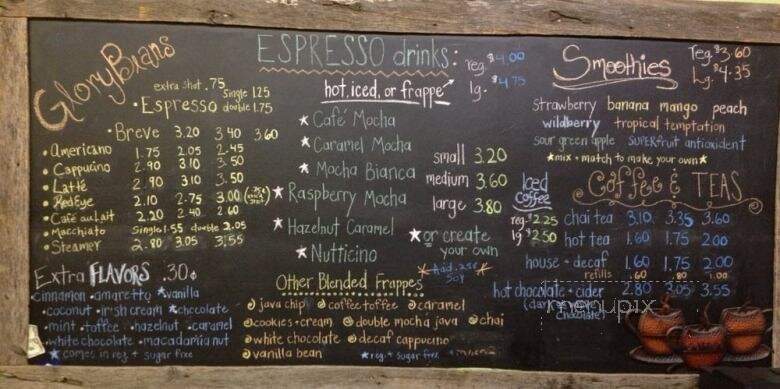 GloryBeans
extra shot .75
single 1.25
• Espresso double 1.75
• Breve 3.20 3.40 3.60
• Americano 1.75 2.05 2.45
• Cappucino 2.90 3.10 3.50
• Latté 2.90 3.10 3.50
• RedEye 2.10 2.75 3.00
• Café au Lait 2.20 2.40 2.60
• Macchiato single 1.55 double 2.05
• Steamer 2.80 3.05 3.55
Extra FLAVORS .30¢
cinnamon • amaretto ★vanilla
• coconut • irish cream ★chocolate
• mint • toffee • hazelnut • caramel
• white chocolate • macadamia nut
★ comes in reg + sugar free
ESPRESSO drinks:
reg. $4.00
lg. $4.75
hot, iced, or frappe
★ Café Mocha
★ Caramel Mocha
★ Mocha Bianca
★ Raspberry Mocha
★ Hazelnut Caramel
★ Nutticino
small 3.20
medium 3.60
large 3.80
★or create
your own
★ add .25¢ ★
soy
Other Blended Frappes
java chip coffee toffee caramel
cookies + cream double mocha java chai
white chocolate decaf cappucino
vanilla bean ★reg. + sugar free
Smoothies
reg. $3.60
Lg. $4.35
strawberry banana mango peach
wildberry tropical temptation
sour green apple SUPERfruit antioxident
★mix + match to make your own★
Iced
Coffee
reg. 2.25
lg 2.50
Coffee & TEAS
chai tea 3.10 3.35 3.60
hot tea 1.60 1.75 2.00
house - decaf 1.60 1.75 2.00
refills .60 .80 1.00
hot chocolate • cider 2.80 3.05 3.55
chocolate)
menupix